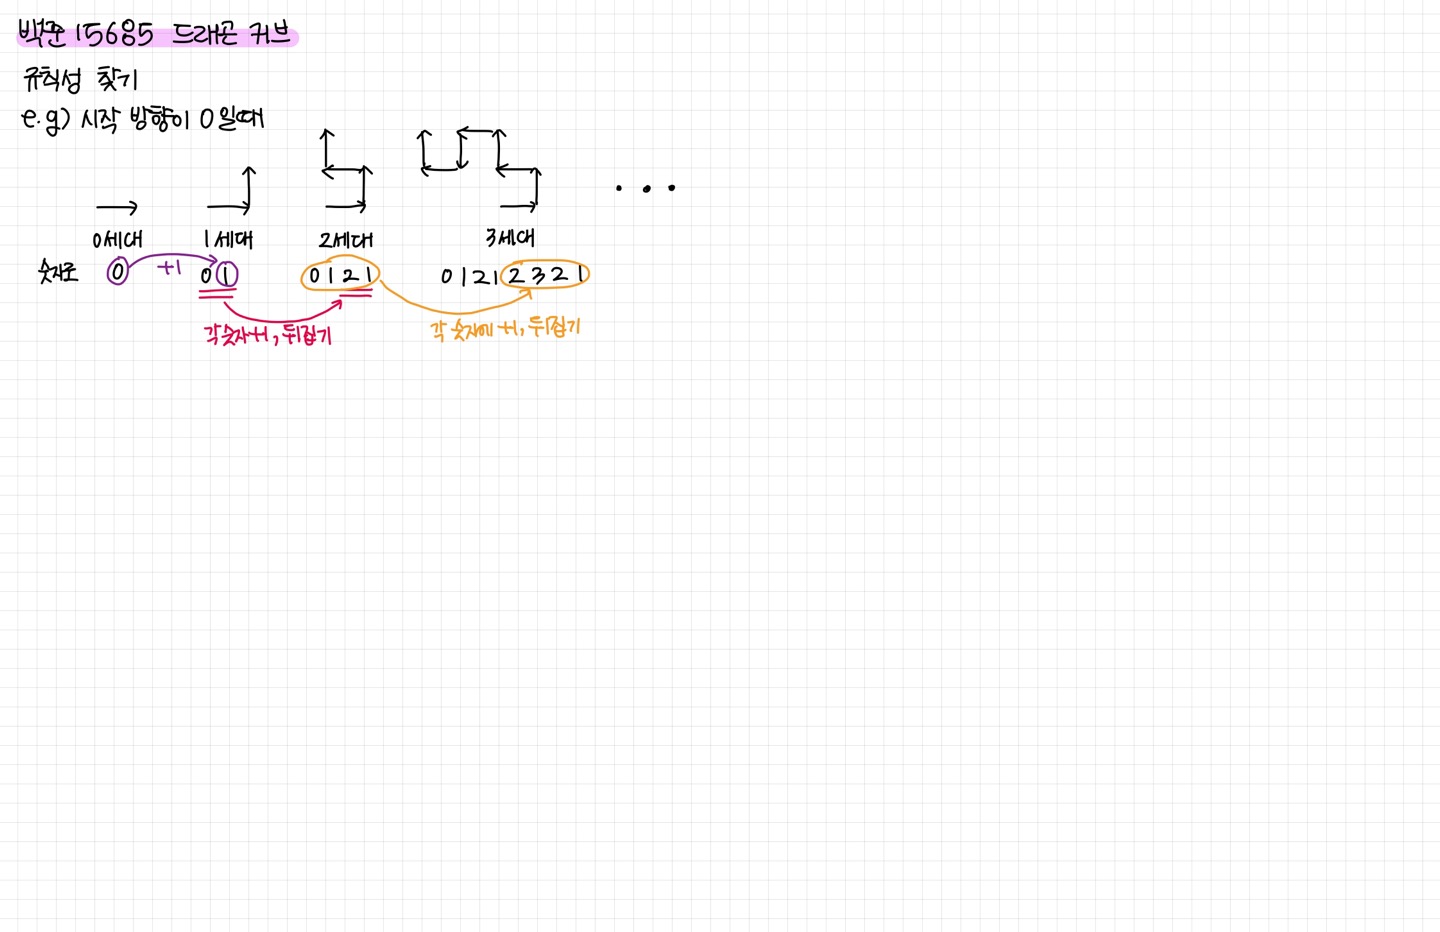 백준 15685 드래곤 커브
규칙성 찾기
e.g) 시작 방향이 0일때
0세대 1세대 2세대 3세대
숫자로 0 +1 0 1 0 1 2 1 0 1 2 1 2 3 2 1
각 숫자+1, 뒤집기 각 숫자에 +1, 뒤집기